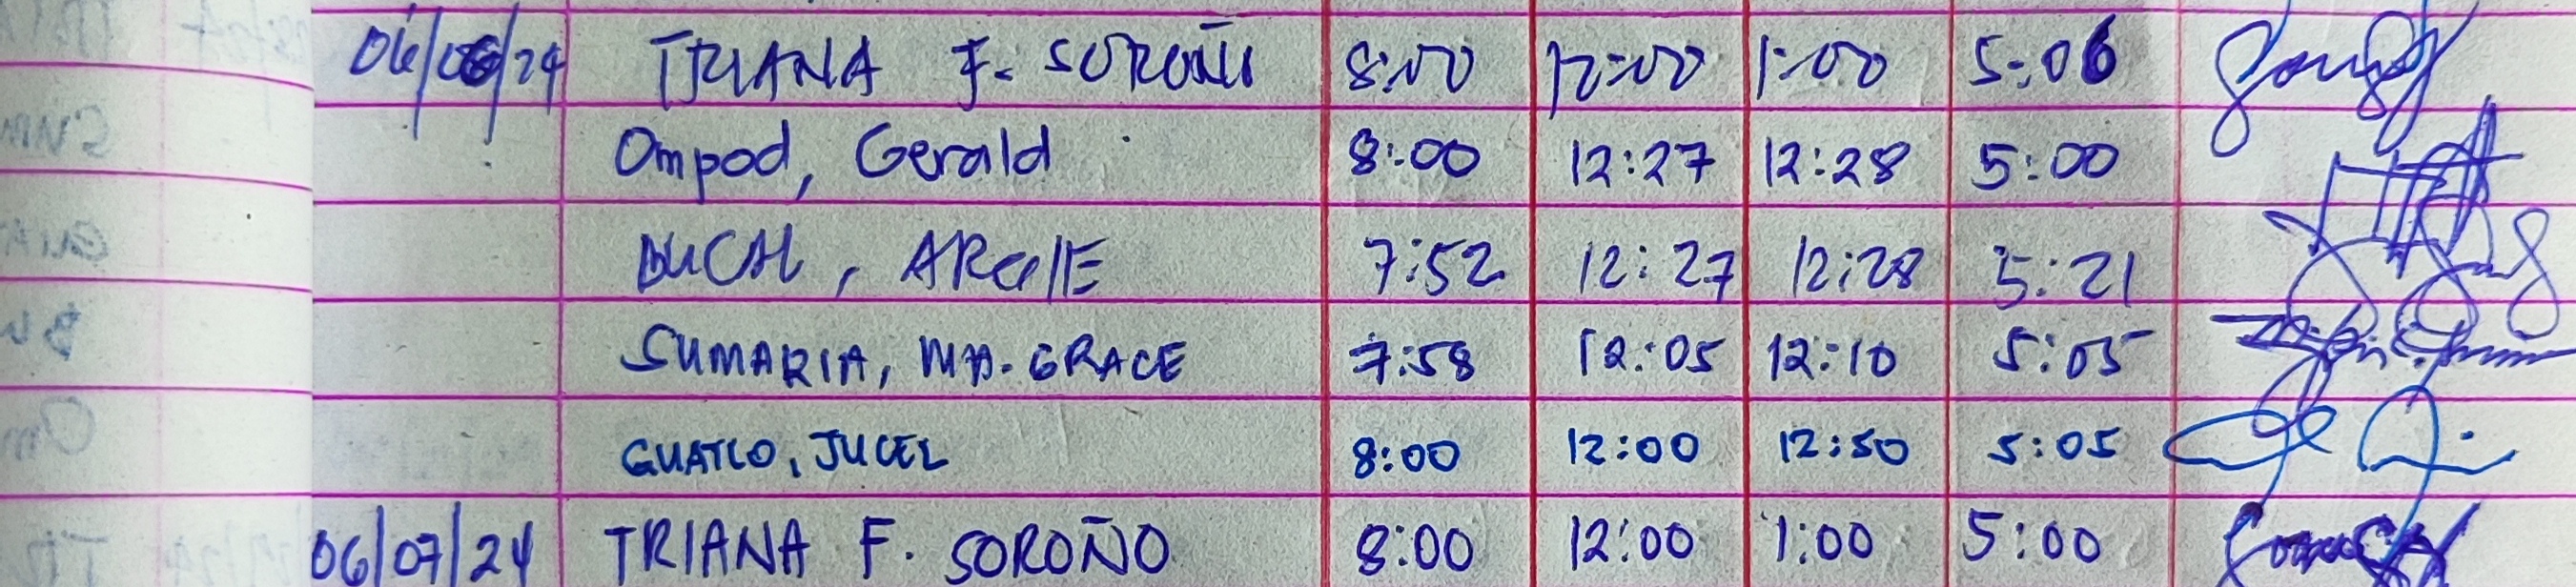 06/06/24 TRIANA F. SOROÑO 8:00 12:00 1:00 5:06
Ompod, Gerald 8:00 12:27 12:28 5:00
BUCAL, ARCIE 7:52 12:27 12:28 5:21
SUMARIA, MA. GRACE 7:58 12:05 12:10 5:05
GUATLO, JUCEL 8:00 12:00 12:50 5:05
06/07/24 TRIANA F. SOROÑO 8:00 12:00 1:00 5:00